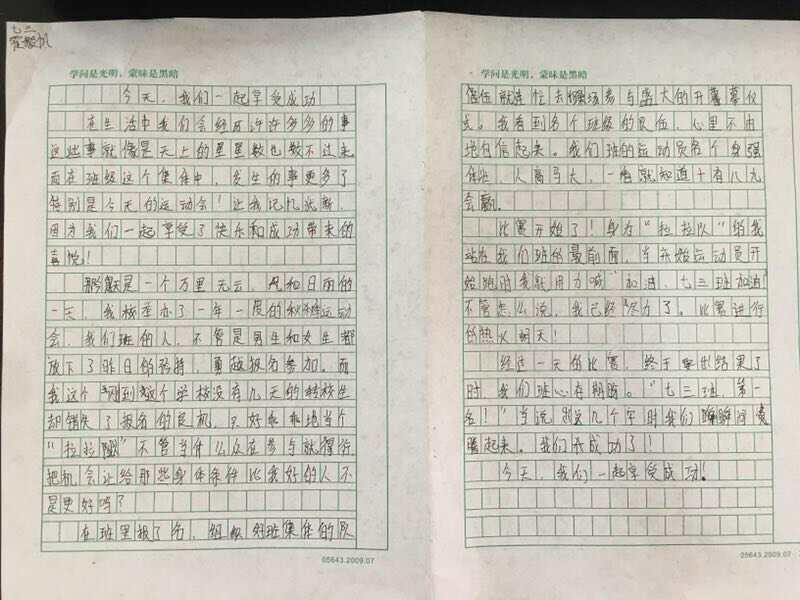 七三
学问是光明，蒙昧是黑暗
今天，我们一起享受成功
在生活中我们会经历许许多多的事
这些事就像是天上的星星数也数不过来
而在班级这个集体中，发生的事更多了
特别是今天的运动会！让我记忆犹新，
因为我们一起享受了快乐和成功带来的
喜悦！
那天是一个万里无云，风和日丽的
一天，我校举办了一年一度的秋季运动
会，我们班的人，不管是男生和女生都
放下了昨日的矜持，勇敢报名参加。而
我这个刚到这个学校没有几天的转校生
却错失了报名的良机。只好乖乖地当个
“拉拉队”不管当什么众在参与就得行
把机会让给那些身体条件比我好的人不
是更好吗？
在班里报了名，组织好班集体的队
05643.2009.07
学问是光明，蒙昧是黑暗
伍就连忙去操场参与盛大的开幕仪
式。我看到各个班级的队伍，心里不由
地自信起来。我们班的运动员各个身强
体壮，人高马大，一看就知道十有八九
会赢。
比赛开始了！身为“拉拉队”的我
站在我们班的最前面，当开始运动员开
始跑时我就用力喊“加油，七三班加油”
不管怎么说，我已经尽力了。比赛进行
的热火朝天！
经过一天的比赛，终于结果了
时，我们班心在期盼。“七三班，第一
名！”当说到这几个字时我们瞬间沸
腾起来。我们成功了！
今天，我们一起享受成功！
05643.2009.07